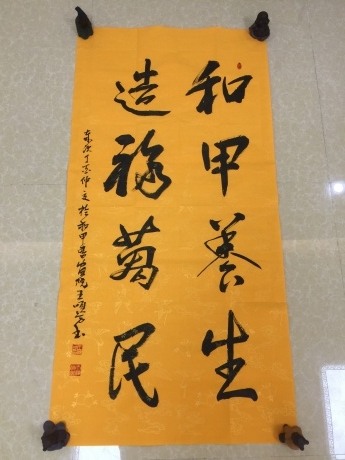 和甲养生
造福萬民
岁次丁酉仲夏於和甲書画院王